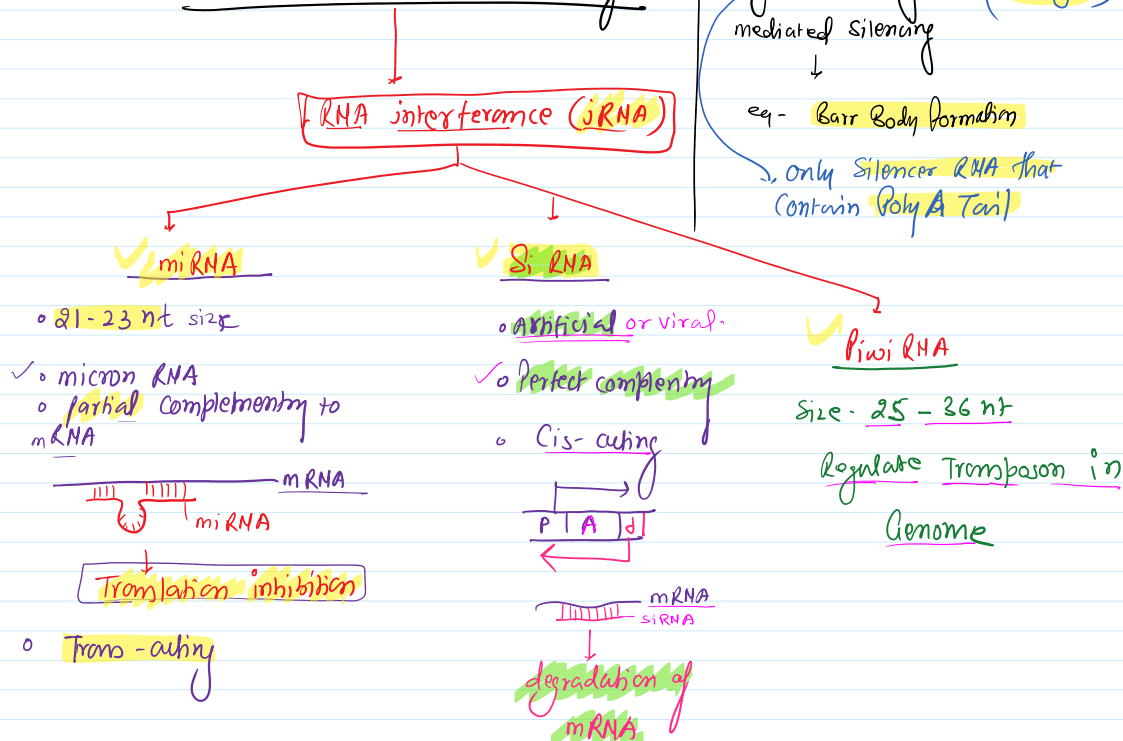 mediated silencing
eg- Barr Body formation
only Silencer RNA that
contain Poly A Tail
RNA interferance (iRNA)
miRNA
21-23 nt size
micron RNA
partial complementry to
mRNA
mRNA
miRNA
Translation inhibition
Trans-acting
Si RNA
Artificial or viral.
Perfect complentry
Cis-acting
P A d
mRNA
siRNA
degradation of
mRNA
Piwi RNA
Size- 25-36 nt
Regulate Transposon in
Genome